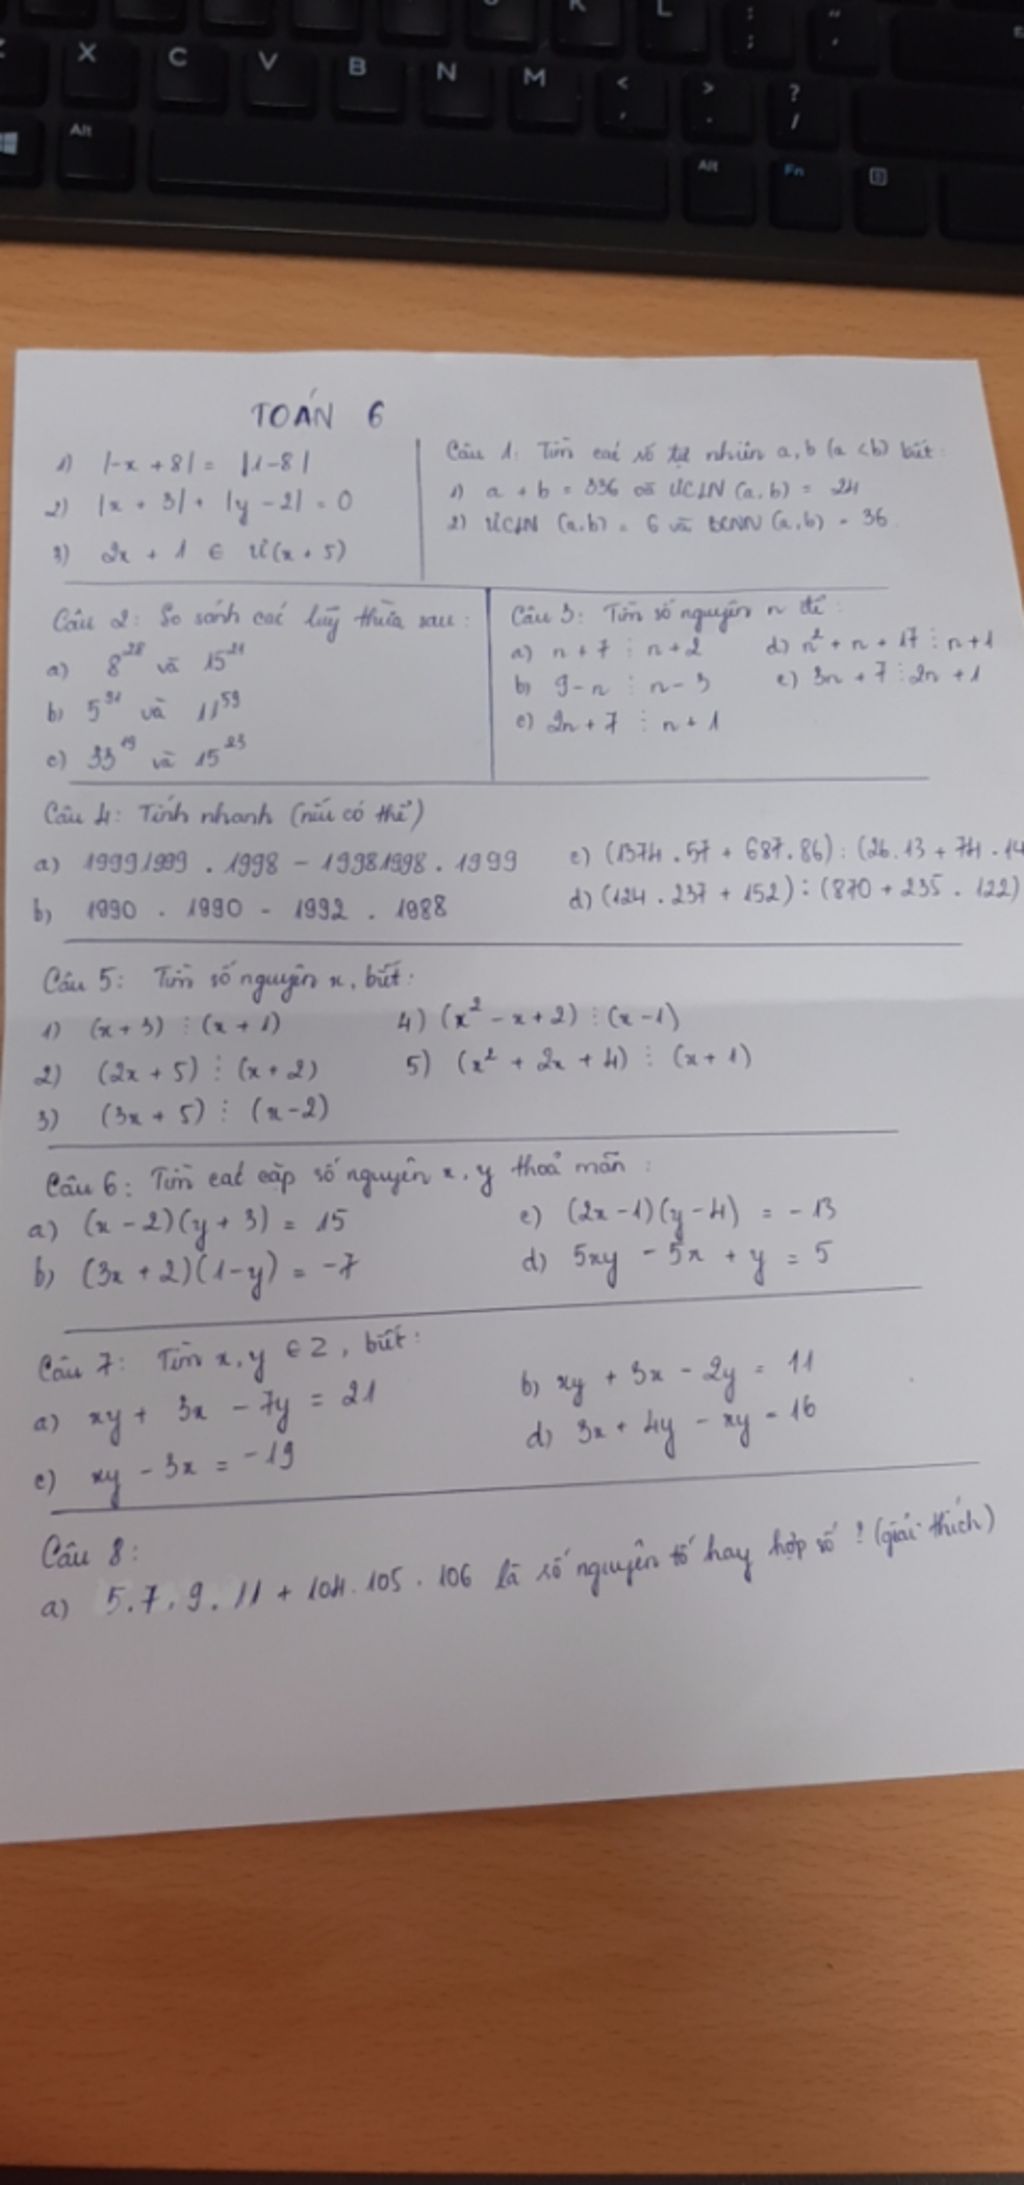 K L : ; " '
X C V B N M < , > . ? /
Alt Alt Fn
TOÁN 6
1) |-x + 8| = |1-8|
2) |x + 3| + |y - 2| = 0
3) 2x + 1 ∈ Ư(x + 5)
Câu 1: Tìm các số tự nhiên a, b (a < b) biết:
1) a + b = 336 và ƯCLN (a, b) = 24
2) ƯCLN (a, b) = 6 và BCNN (a, b) = 36
Câu 2: So sánh các lũy thừa sau:
a) 8^28 và 15^21
b) 5^91 và 11^59
c) 33^19 và 15^23
Câu 3: Tìm số nguyên n để:
a) n + 7 ⋮ n + 2
b) 9 - n ⋮ n - 3
c) 2n + 7 ⋮ n + 1
d) n² + n + 17 ⋮ n + 1
e) 3n + 7 ⋮ 2n + 1
Câu 4: Tính nhanh (nếu có thể)
a) 19991999 . 1998 - 19981998 . 1999
b) 1990 . 1990 - 1992 . 1988
c) (1374 . 57 + 687 . 86) : (26 . 13 + 74 . 14
d) (124 . 237 + 152) : (870 + 235 . 122)
Câu 5: Tìm số nguyên x, biết:
1) (x + 3) ⋮ (x + 1)
2) (2x + 5) ⋮ (x + 2)
3) (3x + 5) ⋮ (x - 2)
4) (x² - x + 2) ⋮ (x - 1)
5) (x² + 2x + 4) ⋮ (x + 1)
Câu 6: Tìm các cặp số nguyên x, y thoả mãn:
a) (x - 2)(y + 3) = 15
b) (3x + 2)(1 - y) = -7
c) (2x - 1)(y - 4) = -13
d) 5xy - 5x + y = 5
Câu 7: Tìm x, y ∈ Z, biết:
a) xy + 3x - 7y = 21
b) xy + 3x - 2y = 11
c) xy - 3x = -19
d) 3x + 4y - xy = 16
Câu 8:
a) 5.7.9.11 + 104.105.106 là số nguyên tố hay hợp số? (giải thích)